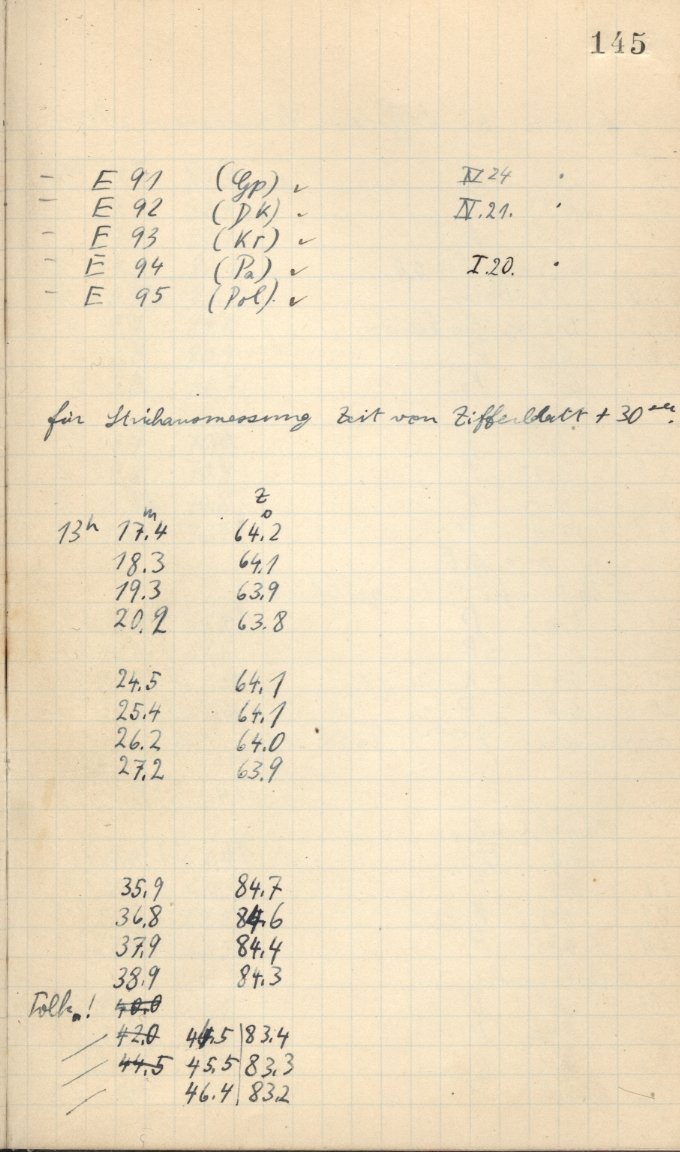 145
– E 91 (Gp) ✓ IV 24 .
– E 92 (DK) ✓ IV.21. .
– E 93 (Kr) ✓
– E 94 (Pa) ✓ I.20. .
– E 95 (Pol). ✓
für Strichausmessung Zeit von Zifferblatt + 30 sec.
m Z o
13h 17.4 64.2
18.3 64.1
19.3 63.9
20.2 63.8
24.5 64.1
25.4 64.1
26.2 64.0
27.2 63.9
35.9 84.7
36.8 84.6
37.9 84.4
38.9 84.3
! 40.0
42.0 44.5 | 83.4
44.5 45.5 | 83.3
46.4 | 83.2